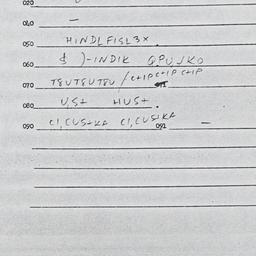 020
040 —
050 HINDLFISL3X.
060 $ )-INDIK QPUJKO
070 TEUTEUTEU / C+IP C+IP C+IP
080 U,S+ HUS+ .
090 CI,CUS+KA CI,CUSIKA 091 —